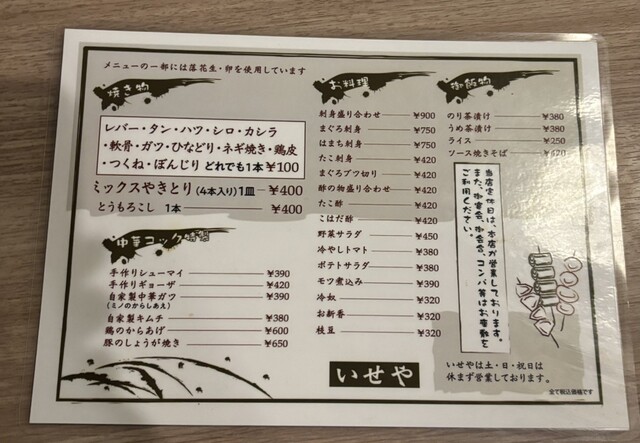 メニューの一部には落花生・卵を使用しています
焼き物
レバー・タン・ハツ・シロ・カシラ
・軟骨・ガツ・ひなどり・ネギ焼き・鶏皮
・つくね・ぼんじり どれでも1本 ¥100
ミックスやきとり(4本入り)1皿 ¥400
とうもろこし 1本 ¥400
中華コック特製
手作りシューマイ ¥390
手作りギョーザ ¥420
自家製中華ガツ ¥390
(ミノのからしあえ)
自家製キムチ ¥380
鶏のからあげ ¥600
豚のしょうが焼き ¥650
お料理
刺身盛り合わせ ¥900
まぐろ刺身 ¥750
はまち刺身 ¥750
たこ刺身 ¥420
まぐろブツ切り ¥420
酢の物盛り合わせ ¥420
たこ酢 ¥420
こはだ酢 ¥420
野菜サラダ ¥450
冷やしトマト ¥380
ポテトサラダ ¥380
モツ煮込み ¥390
冷奴 ¥320
お新香 ¥320
枝豆 ¥320
御飯物
のり茶漬け ¥380
うめ茶漬け ¥380
ライス ¥250
ソース焼きそば ¥420
当店定休日は、本店が営業しております。
また、御宴会、御会合、コンパ等はお電話を
ご利用ください。
いせや
いせやは土・日・祝日は
休まず営業しております。
全て税込価格です